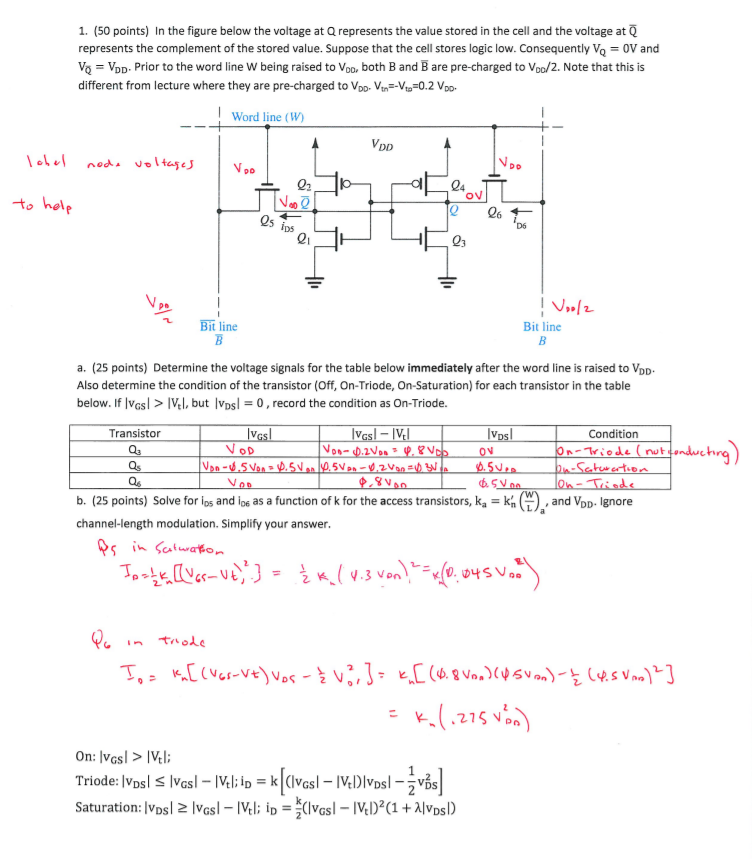 1. (50 points) In the figure below the voltage at Q represents the value stored in the cell and the voltage at Q̅
represents the complement of the stored value. Suppose that the cell stores logic low. Consequently V_Q = 0V and
V_Q̅ = V_DD. Prior to the word line W being raised to V_DD, both B and B̅ are pre-charged to V_DD/2. Note that this is
different from lecture where they are pre-charged to V_DD. V_tn=-V_tp=0.2 V_DD.
Word line (W)
V_DD
label node voltages
to help
V_DD
V_DD
Q₂
Q₄
V_DD Q̅
0V
Q
Q₅ i_D5
Q₆
i_D6
Q₁
Q₃
V_DD/2
V_DD/2
B̅i̅t̅ line
B̅
Bit line
B
a. (25 points) Determine the voltage signals for the table below immediately after the word line is raised to V_DD.
Also determine the condition of the transistor (Off, On-Triode, On-Saturation) for each transistor in the table
below. If |v_GS| > |V_t|, but |v_DS| = 0, record the condition as On-Triode.
Transistor |v_GS| |v_GS| − |V_t| |v_DS| Condition
Q₃ V_DD V_DD-0.2V_DD = 0.8V_DD 0V On-Triode (not conducting)
Q₅ V_DD-0.5V_DD = 0.5V_DD 0.5V_DD-0.2V_DD=0.3V_DD 0.5V_DD On-Saturation
Q₆ V_DD 0.8V_DD 0.5V_DD On-Triode
b. (25 points) Solve for i_D5 and i_D6 as a function of k for the access transistors, k_a = k'_n (W/L)_a, and V_DD. Ignore
channel-length modulation. Simplify your answer.
Q5 in saturation
I_D=½k_n[(V_GS-V_t)²] = ½ k_n(0.3 V_DD)² = k_n(0.045 V_DD²)
Q6 in triode
I_D = k_n[(V_GS-V_t)V_DS - ½ V_D²,] = k_n[(0.8V_DD)(0.5V_DD)-½(0.5V_DD)²]
= k_n(.275 V_DD²)
On: |v_GS| > |V_t|;
Triode: |v_DS| ≤ |v_GS| − |V_t|; i_D = k[(|v_GS| − |V_t|)|v_DS| − ½v²_DS]
Saturation: |v_DS| ≥ |v_GS| − |V_t|; i_D = k/2(|v_GS| − |V_t|)²(1 + λ|v_DS|)